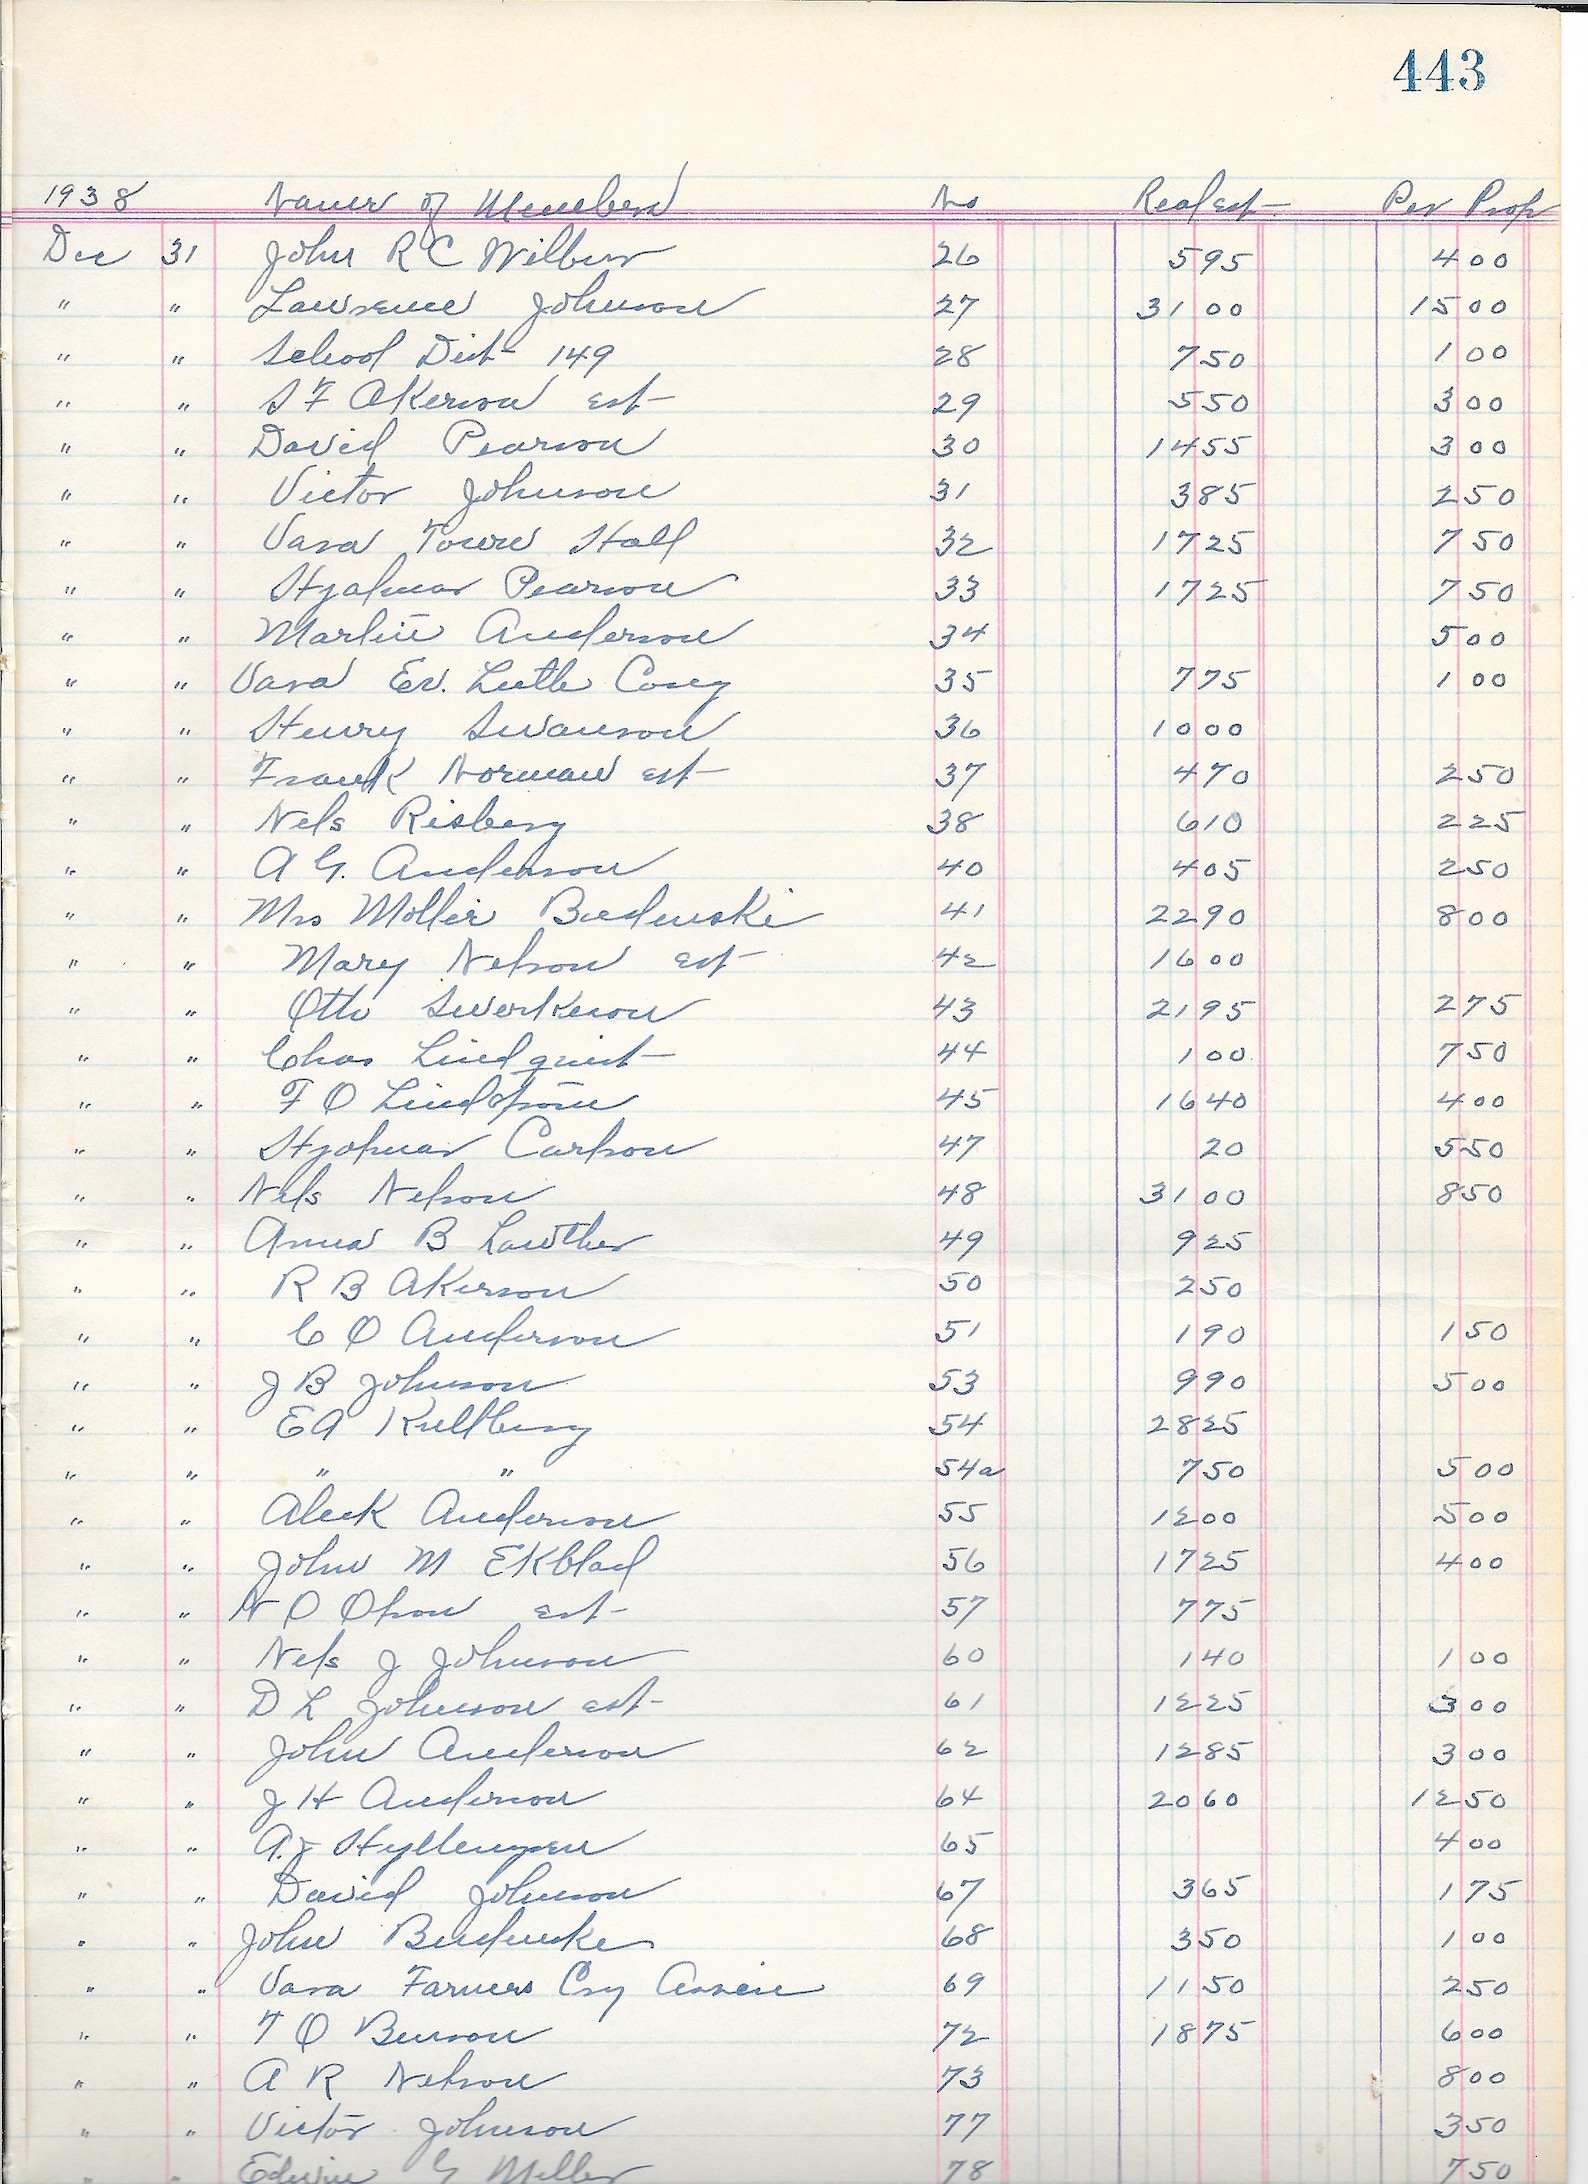 443
1938 Names of Members No Real Est Per Prop
Dec 31 John R C Wilbur 26 595 400
" " Lawrence Johnson 27 3100 1500
" " School Dist 149 28 750 100
" " S F Akerson est 29 550 300
" " David Pearson 30 1455 300
" " Victor Johnson 31 385 250
" " Vasa Town Hall 32 1725 750
" " Hjalmar Pearson 33 1725 750
" " Martin Anderson 34 500
" " Vasa Ev. Luth Cong 35 775 100
" " Henry Swanson 36 1000
" " Frank Norman est 37 470 250
" " Nels Risberg 38 610 225
" " A G. Anderson 40 405 250
" " Mrs Mollie Budenski 41 2290 800
" " Mary Nelson est 42 1600
" " Otto Swerkeson 43 2195 275
" " Chas Lindquist 44 100 750
" " F O Lindstrom 45 1640 400
" " Hjalmar Carlson 47 20 550
" " Nels Nelson 48 3100 850
" " Anna B Lawther 49 925
" " R B Akerson 50 250
" " C O Anderson 51 190 150
" " J B Johnson 53 990 500
" " E A Kullberg 54 2825
" " " " 54a 750 500
" " Aleck Anderson 55 1200 500
" " John M Ekblad 56 1725 400
" " N O Olson est 57 775
" " Nels J Johnson 60 140 100
" " D L Johnson est 61 1225 300
" " John Anderson 62 1285 300
" " J H Anderson 64 2060 1250
" " A. J 65 400
" " David Johnson 67 365 175
" " John 68 350 100
" " Vasa Farmers Cry Assn 69 1150 250
" " T O Benson 72 1875 600
" " A R Nelson 73 800
" " Victor Johnson 77 350
" " Edwin G Miller 78 750